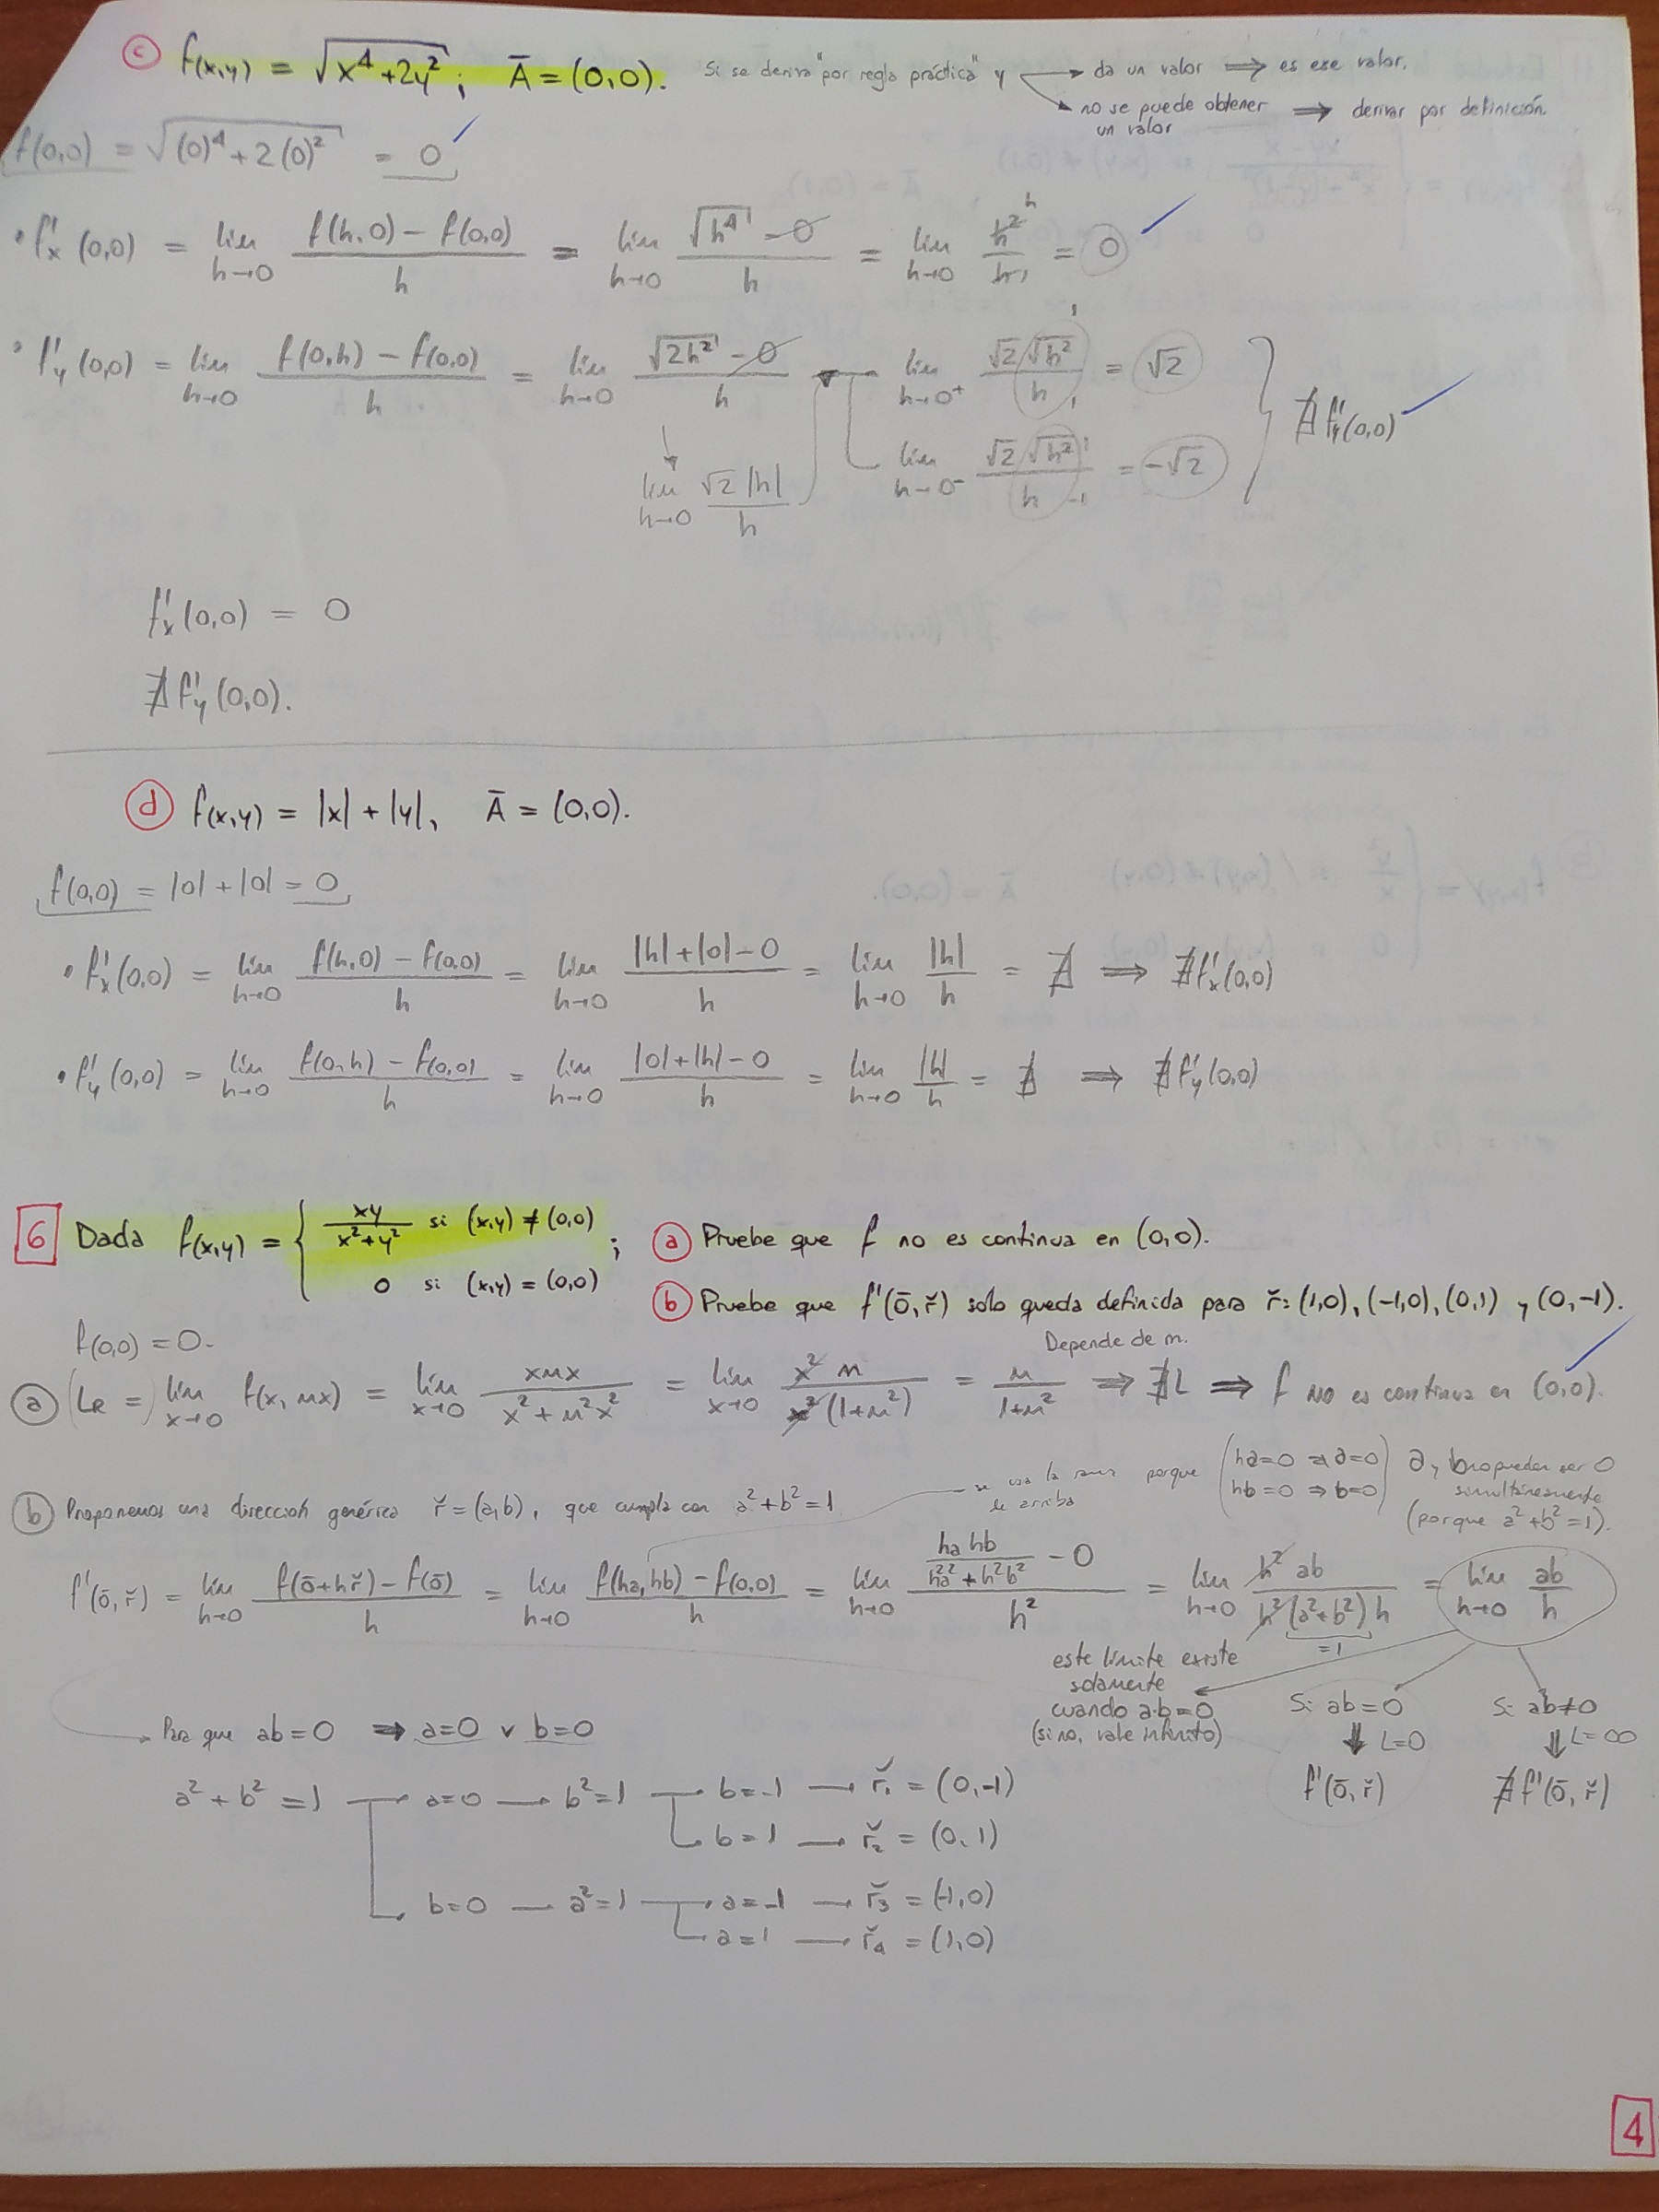 c) f(x,y) = √(x⁴ + 2y²) ; Ā = (0,0). Si se deriva "por regla práctica" y → da un valor ⟹ es ese valor.
→ no se puede obtener un valor ⟹ derivar por definición.
f(0,0) = √((0)⁴ + 2(0)²) = 0
• f'x (0,0) = lim h→0 (f(h,0) − f(0,0))/h = lim h→0 (√h⁴ − 0)/h = lim h→0 h²/h = 0
• f'y (0,0) = lim h→0 (f(0,h) − f(0,0))/h = lim h→0 (√2h² − 0)/h → lim h→0⁺ (√2 √h²)/h = √2
lim h→0 (√2 |h|)/h
lim h→0⁻ (√2 √h²)/h = −√2
∄ f'y(0,0)
f'x (0,0) = 0
∄ f'y (0,0).
d) f(x,y) = |x| + |y|, Ā = (0,0).
f(0,0) = |0| + |0| = 0
• f'x (0,0) = lim h→0 (f(h,0) − f(0,0))/h = lim h→0 (|h| + |0| − 0)/h = lim h→0 |h|/h = ∄ ⟹ ∄ f'x (0,0)
• f'y (0,0) = lim h→0 (f(0,h) − f(0,0))/h = lim h→0 (|0| + |h| − 0)/h = lim h→0 |h|/h = ∄ ⟹ ∄ f'y (0,0)
6 Dada f(x,y) = { xy/(x² + y²) si (x,y) ≠ (0,0)
0 si (x,y) = (0,0) ;
a) Pruebe que f no es continua en (0,0).
b) Pruebe que f'(ō, ř) solo queda definida para ř: (1,0), (−1,0), (0,1) y (0,−1).
f(0,0) = 0.
Depende de m.
a) (LR =) lim x→0 f(x, mx) = lim x→0 xmx/(x² + m²x²) = lim x→0 x² m/(x²(1+m²)) = m/(1+m²) ⟹ ∄L ⟹ f no es continua en (0,0).
se usa la de arriba porque (ha=0 ⇒ a=0
hb=0 ⇒ b=0) a y b no pueden ser 0 simultáneamente (porque a² + b² = 1).
b) Proponemos una dirección genérica ř = (a,b), que cumpla con a² + b² = 1.
f'(ō, ř) = lim h→0 (f(ō+hř) − f(ō))/h = lim h→0 (f(ha, hb) − f(0,0))/h = lim h→0 (ha hb/(h²a² + h²b²) − 0)/h² = lim h→0 h² ab/(h² (a²+b²) h) = lim h→0 ab/h
= 1
este límite existe
solamente
cuando a·b = 0
(si no, vale infinito)
Si ab = 0
⇓ L = 0
f'(ō, ř)
Si ab ≠ 0
⇓ L = ∞
∄ f'(ō, ř)
Para que ab = 0 ⟹ a = 0 ∨ b = 0
a² + b² = 1 → a = 0 → b² = 1 → b = −1 → ř₁ = (0,−1)
b = 1 → ř₂ = (0,1)
b = 0 → a² = 1 → a = −1 → ř₃ = (−1,0)
a = 1 → ř₄ = (1,0)
4